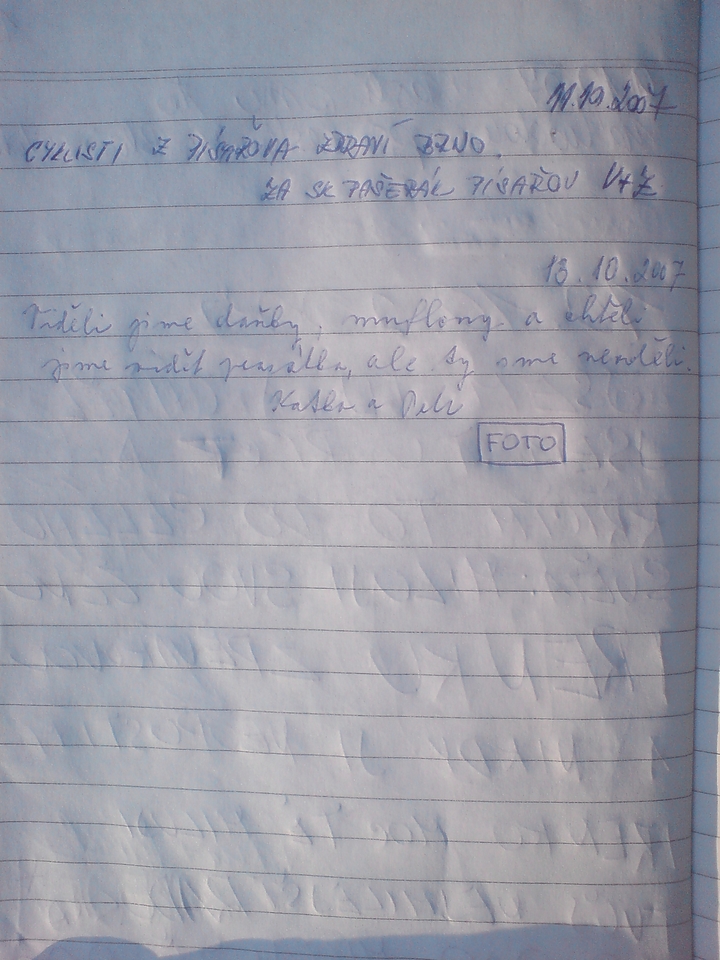 11.10.2007
CYKLISTI Z PÍSAŘOVA ZDRAVÍ BRNO.
ZA SK PAŠERÁK PÍSAŘOV V+Z
13.10.2007
Viděli jsme daňky, muflony a chtěli
jsme vidět prasátka, ale ty sme neviděli.
Katka a
FOTO